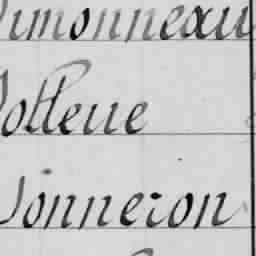 Simonneau
Solleue
Sonneron